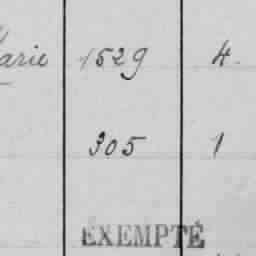 arie 1529 4.
305 1
EXEMPTÉ